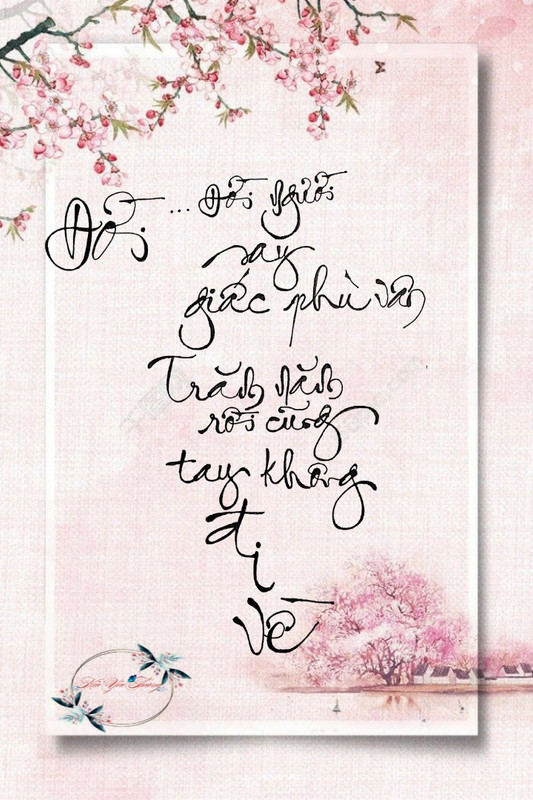 Đời ... Đời người
say
giấc phù vân
Trăm năm
rồi cũng
tay không
đi
về